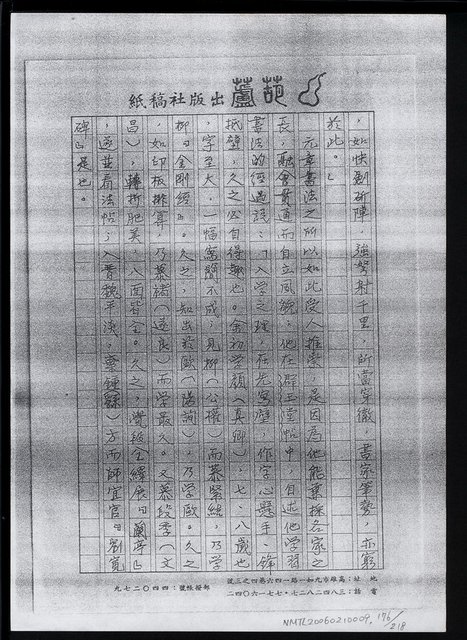 葫蘆出版社稿紙
，如快劍斫陣，強弩射千里，所當穿徹，書家筆勢，亦窮
於此。」
元章書法之所以如此受人推崇，是因為他能兼採各家之
長，融會貫通而自立風貌。他在 中，自述他學習
書法的經過說：「入學之 ，在 ，作字心 手，鋒
抵壁，久之必自得趣也。余初學顏（真卿），七、八歲也
，字至大，一幅寫簡不成，見柳（公權）而慕緊結，乃學
柳『金剛經』。久之，知出於歐（陽詢），乃學歐。久之
，如印板排算，乃慕褚（遂良）而學最久。又慕段季（文
昌），轉折肥美，八面皆全。久之，覺段全繹展『蘭亭』
，遂並看法帖，入晉魏平淡，棄鍾繇方而師宜官『劉寬
碑』是也。
地址：高雄市九如一路一四六巷四之三號
電話：三八四二八二七・七七一六〇四二
郵撥帳號：四四〇二七九
NMTL20060210009, 176/218